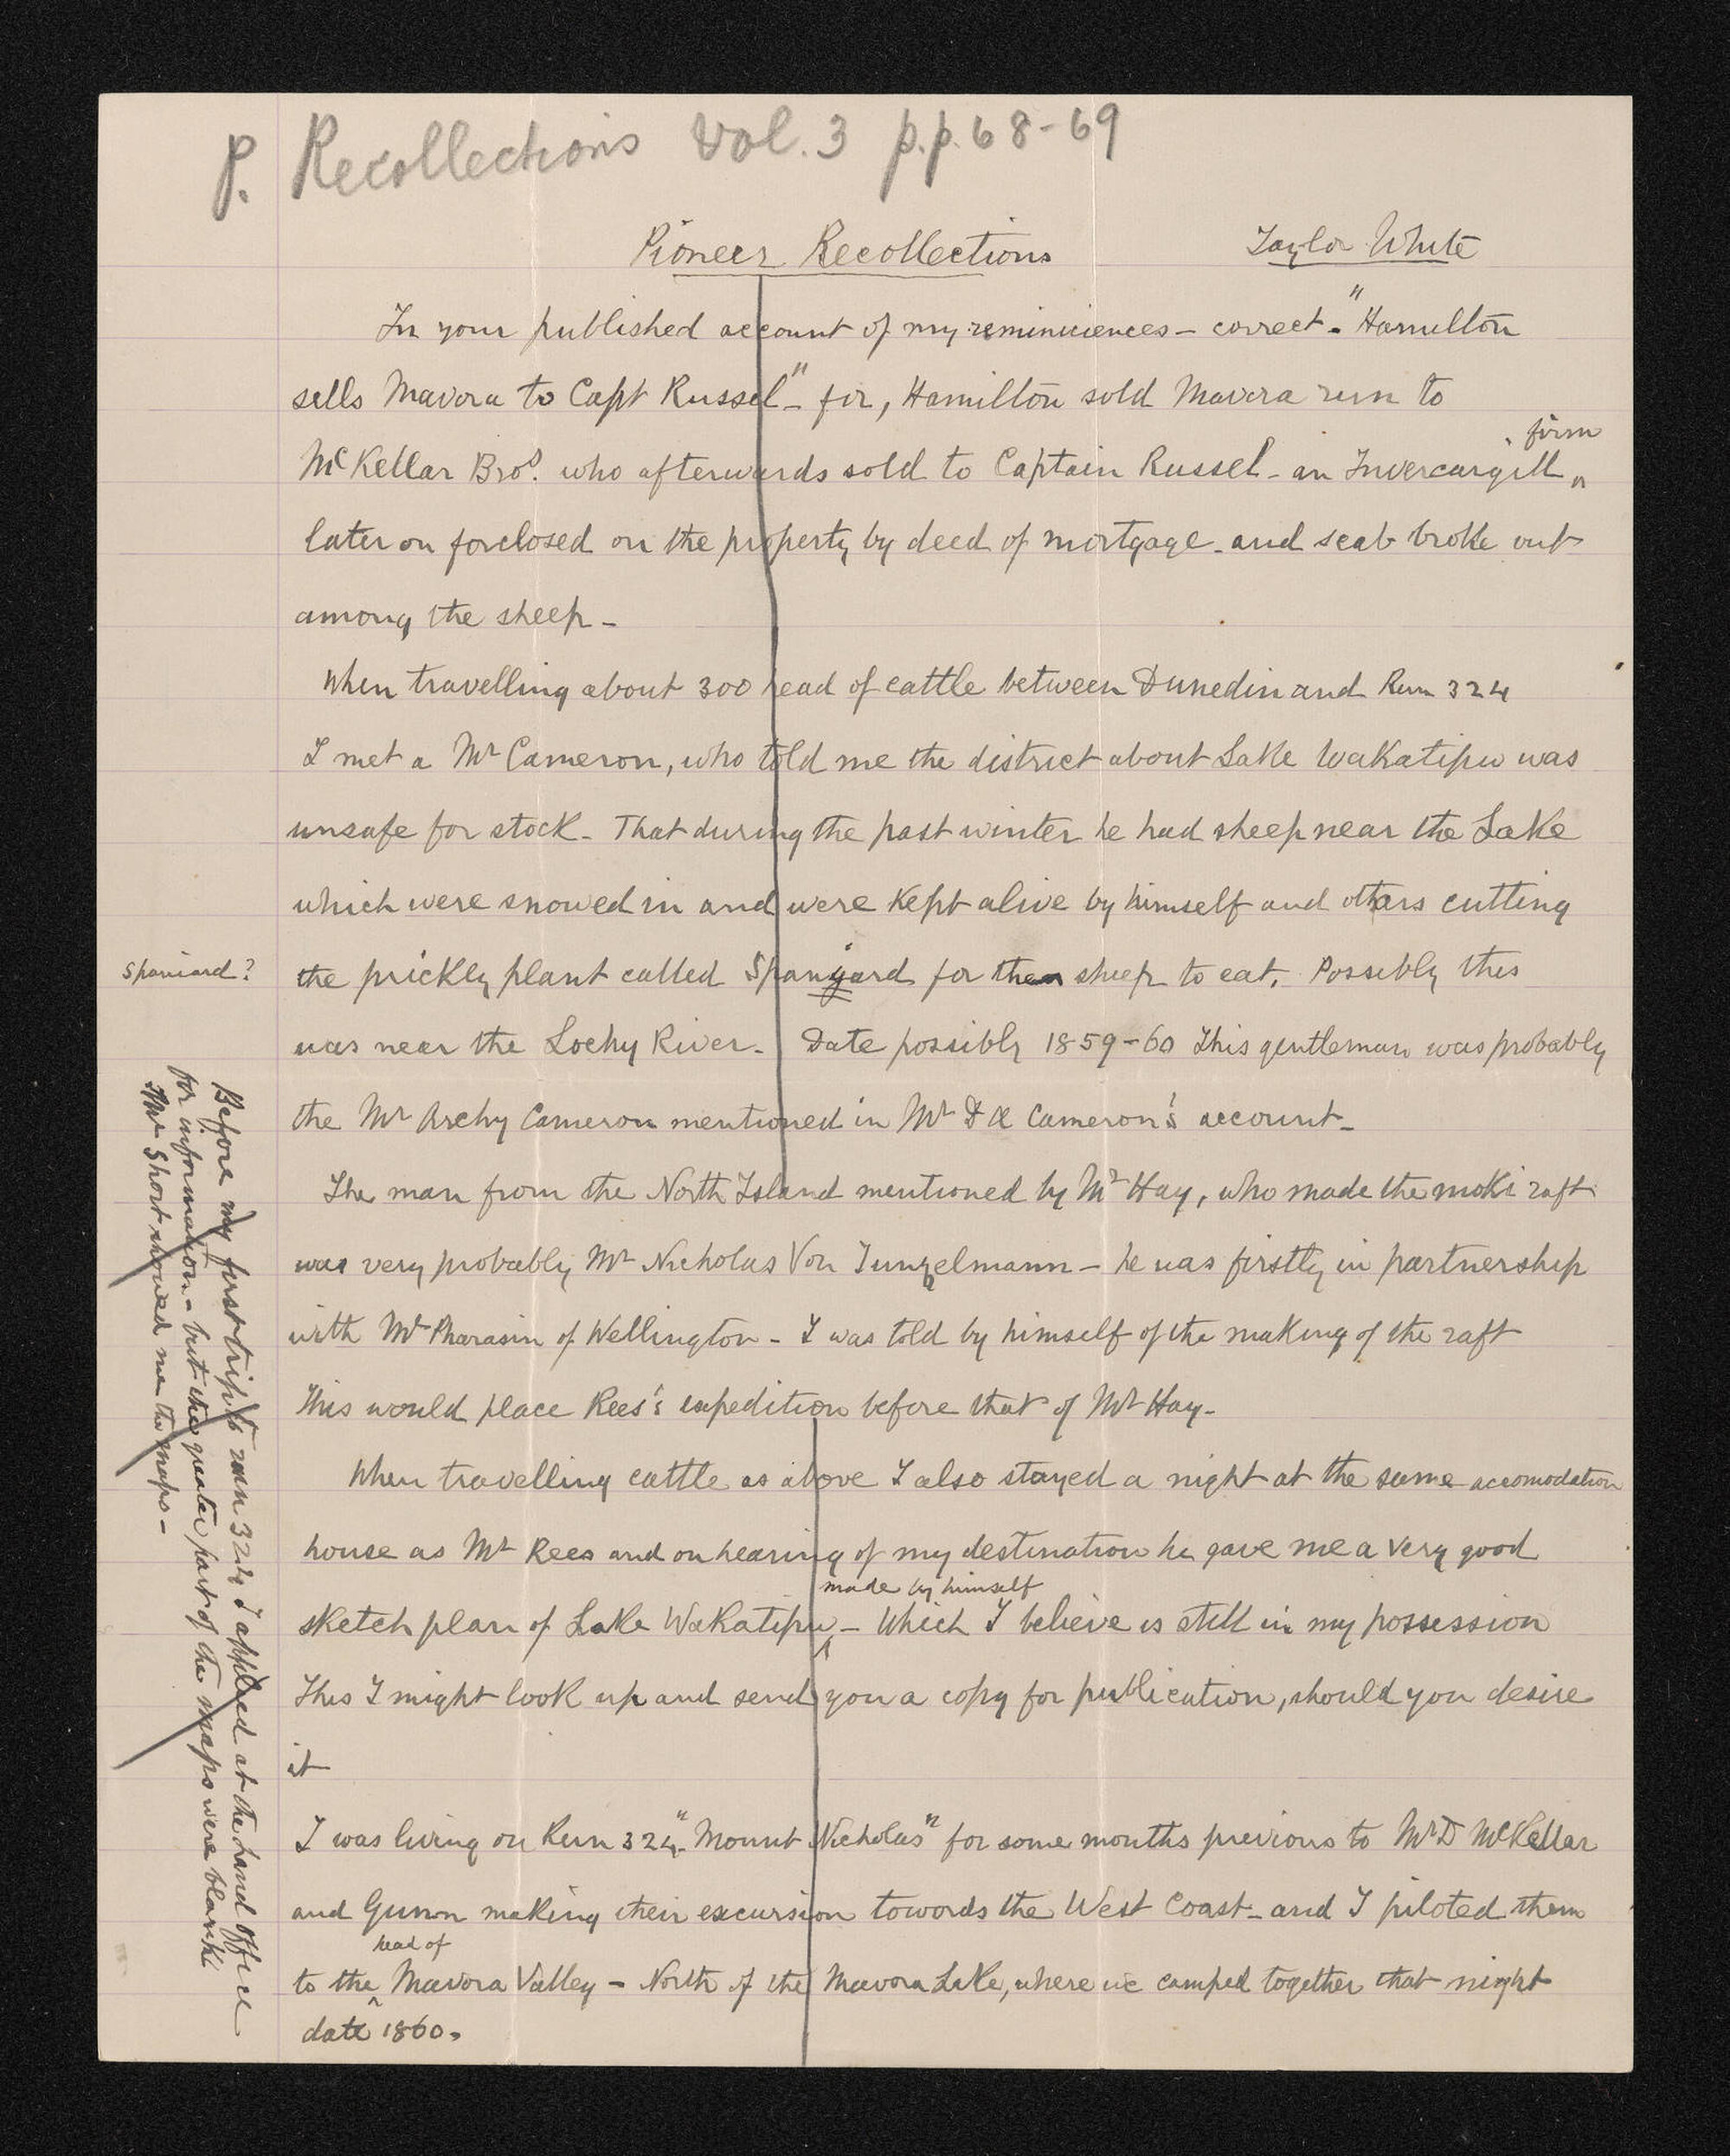 P. Recollections Vol. 3 p.p. 68-69
Pioneer Recollections Taylor White
In your published account of my reminiciences - correct - "Hamilton
sells Mavora to Capt Russel" - for, Hamilton sold Mavora run to
McKellar Bros. who afterwards sold to Captain Russel - an Invercargill firm
later on foreclosed on the property by deed of mortgage - and scab broke out
among the sheep -
When travelling about 300 head of cattle between Dunedin and Run 324
I met a Mr Cameron, who told me the district about Lake Wakatipu was
unsafe for stock - That during the past winter he had sheep near the Lake
which were snowed in and were kept alive by himself and others cutting
the prickly plant called Spanyard for sheep to eat. Possibly this
Spaniard?
was near the Lochy River - Date possibly 1859-60 This gentleman was probably
the Mr Archy Cameron mentioned in Mr D A Cameron's account -
The man from the North Island mentioned by Mr Hay, who made the moki raft
was very probably Mr Nicholas Von Tunzelmann - he was firstly in partnership
with Mr Pharasin of Wellington - I was told by himself of the making of the raft
This would place Rees's expedition before that of Mr Hay -
When travelling cattle as above I also stayed a night at the same accomodation
house as Mr Rees and on hearing of my destination he gave me a very good
sketch plan of Lake Wakatipu made by himself - Which I believe is still in my possession
This I might look up and send you a copy for publication, should you desire
it
I was living on Run 324 - "Mount Nicholas" for some months previous to Mr D McKellar
and Gunn making their excursion towards the West Coast - and I piloted them
to the head of Mavora Valley - North of the Mavora Lake, where we camped together that night
date 1860.
Before my first trip to run 324 I applied at the Land Office
for information - but the greater part of the maps were blank
Mr Short showed me the maps -